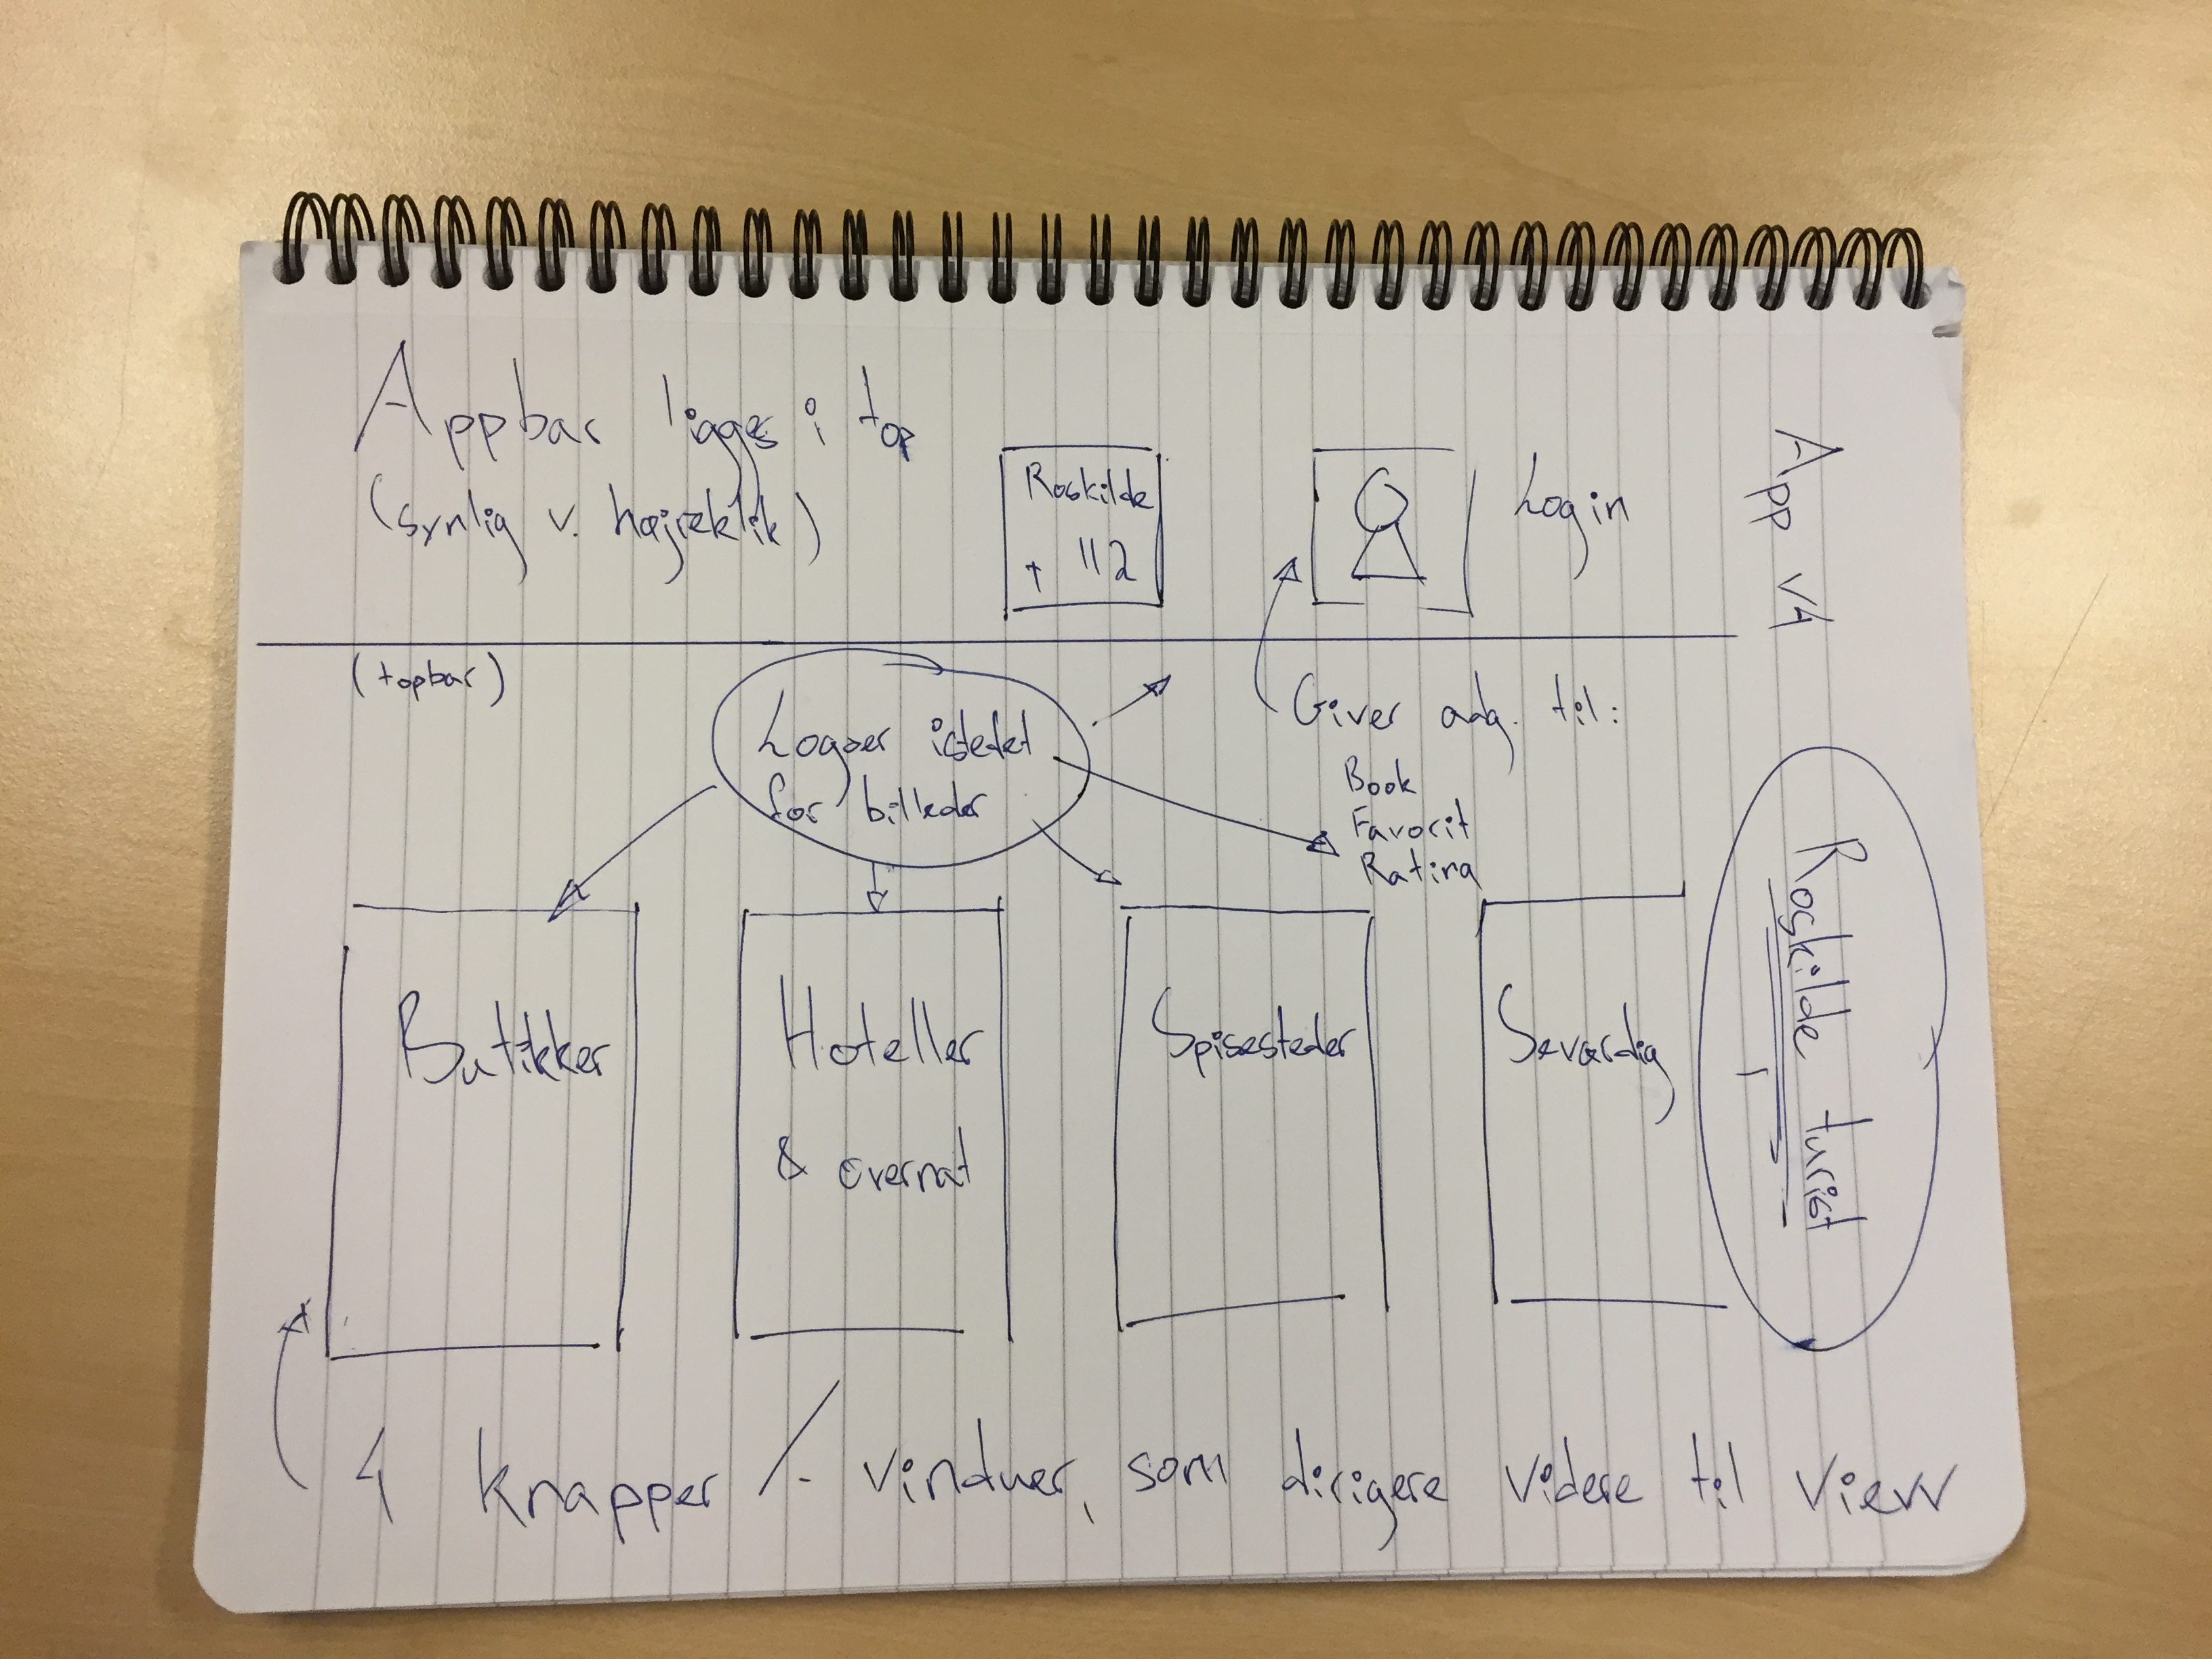 Appbar ligges i top
(synlig v. højreklik)
Roskilde
+ 112
Login
App v4
(topbar)
Logoer istedet
for billeder
Giver adg. til:
Book
Favorit
Rating
Butikker
Hoteller
& overnat
Spisesteder
Seværdig
Roskilde turist
4 knapper /- vinduer, som dirigere videre til view